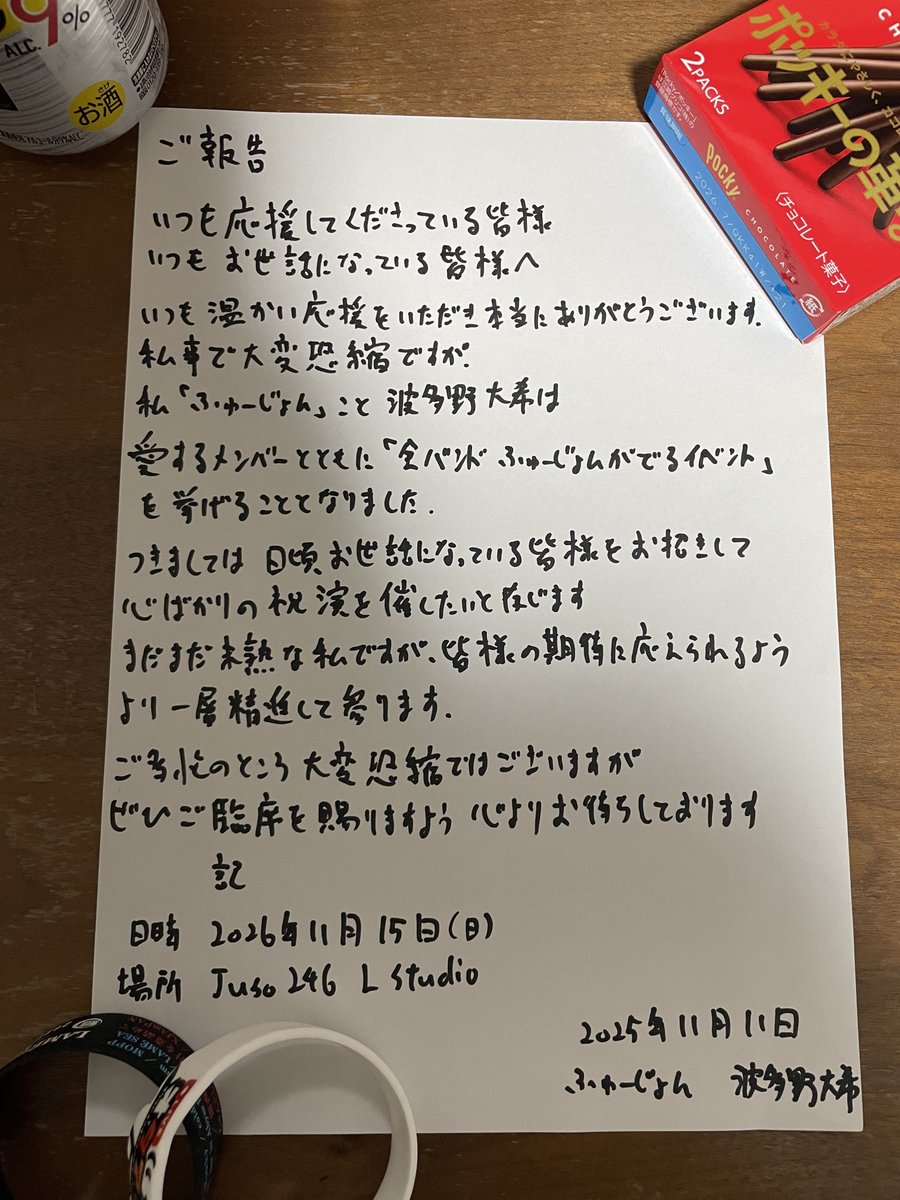 9%
ALC.
お酒
さけ
2PACKS
ポッキーの
Pocky
CHOCOLATE
〈チョコレート菓子〉
紙
ご報告
いつも応援してくださっている皆様
いつもお世話になっている皆様へ
いつも温かい応援をいただき本当にありがとうございます.
私事で大変恐縮ですが.
私「ふゅーじょん」こと 波多野大希は
愛するメンバーとともに「全バンド ふゅーじょんがでるイベント」
を挙げることとなりました.
つきましては 日頃お世話になっている皆様をお招きして
心ばかりの祝演を催したいと存じます
まだまだ未熟な私ですが、皆様の期待に応えられるよう
より一層精進して参ります.
ご多忙のところ大変恐縮ではございますが
ぜひご臨席を賜りますよう 心よりお待ちしております
記
日時 2026年11月15日(日)
場所 Juso246 L Studio
2025年11月11日
ふゅーじょん 波多野大希
MOPP
LAME SEA